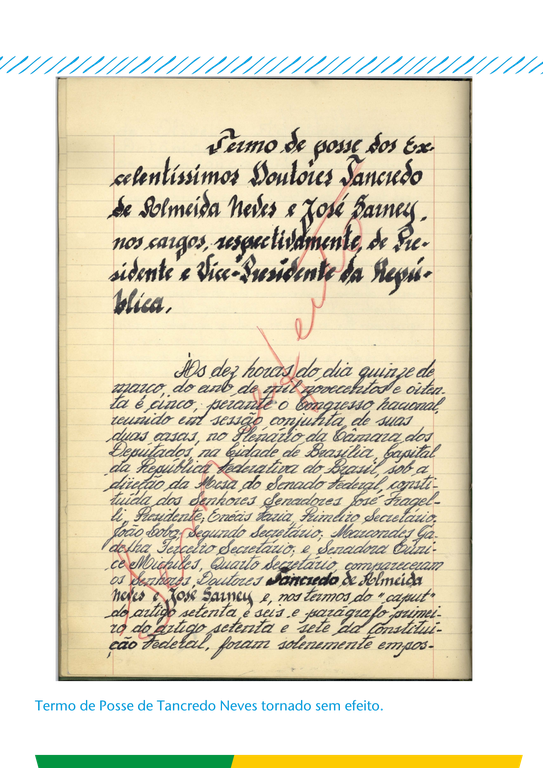 Termo de posse dos Ex-
celentíssimos Doutores Tancredo
de Almeida Neves e José Sarney,
nos cargos, respectivamente, de Pre-
sidente e Vice-Presidente da Repú-
blica.
Às dez horas do dia quinze de
março, do ano de mil novecentos e oiten-
ta e cinco, perante o Congresso nacional,
reunido em sessão conjunta, de suas
duas casas, no Plenário da Câmara dos
Deputados, na Cidade de Brasília, Capital
da República Federativa do Brasil, sob a
direção da Mesa do Senado Federal, consti-
tuída dos Senhores Senadores José Fragel-
li, Presidente, Enéas Faria, Primeiro Secretário,
João Lobo, Segundo Secretário, Marcondes Ga-
delha, Terceiro Secretário, e, Senadora Euni-
ce Michiles, Quarto Secretário, compareceram
os Senhores, Doutores Tancredo de Almeida
Neves e José Sarney e, nos termos do "caput"
do artigo setenta e seis e parágrafo primei-
ro do artigo setenta e sete da Constitui-
ção Federal, foram solenemente empos-
sem efeito
Termo de Posse de Tancredo Neves tornado sem efeito.